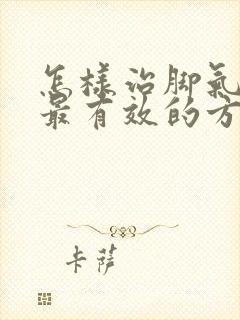 怎样治脚氣
最有效的方
卡薩